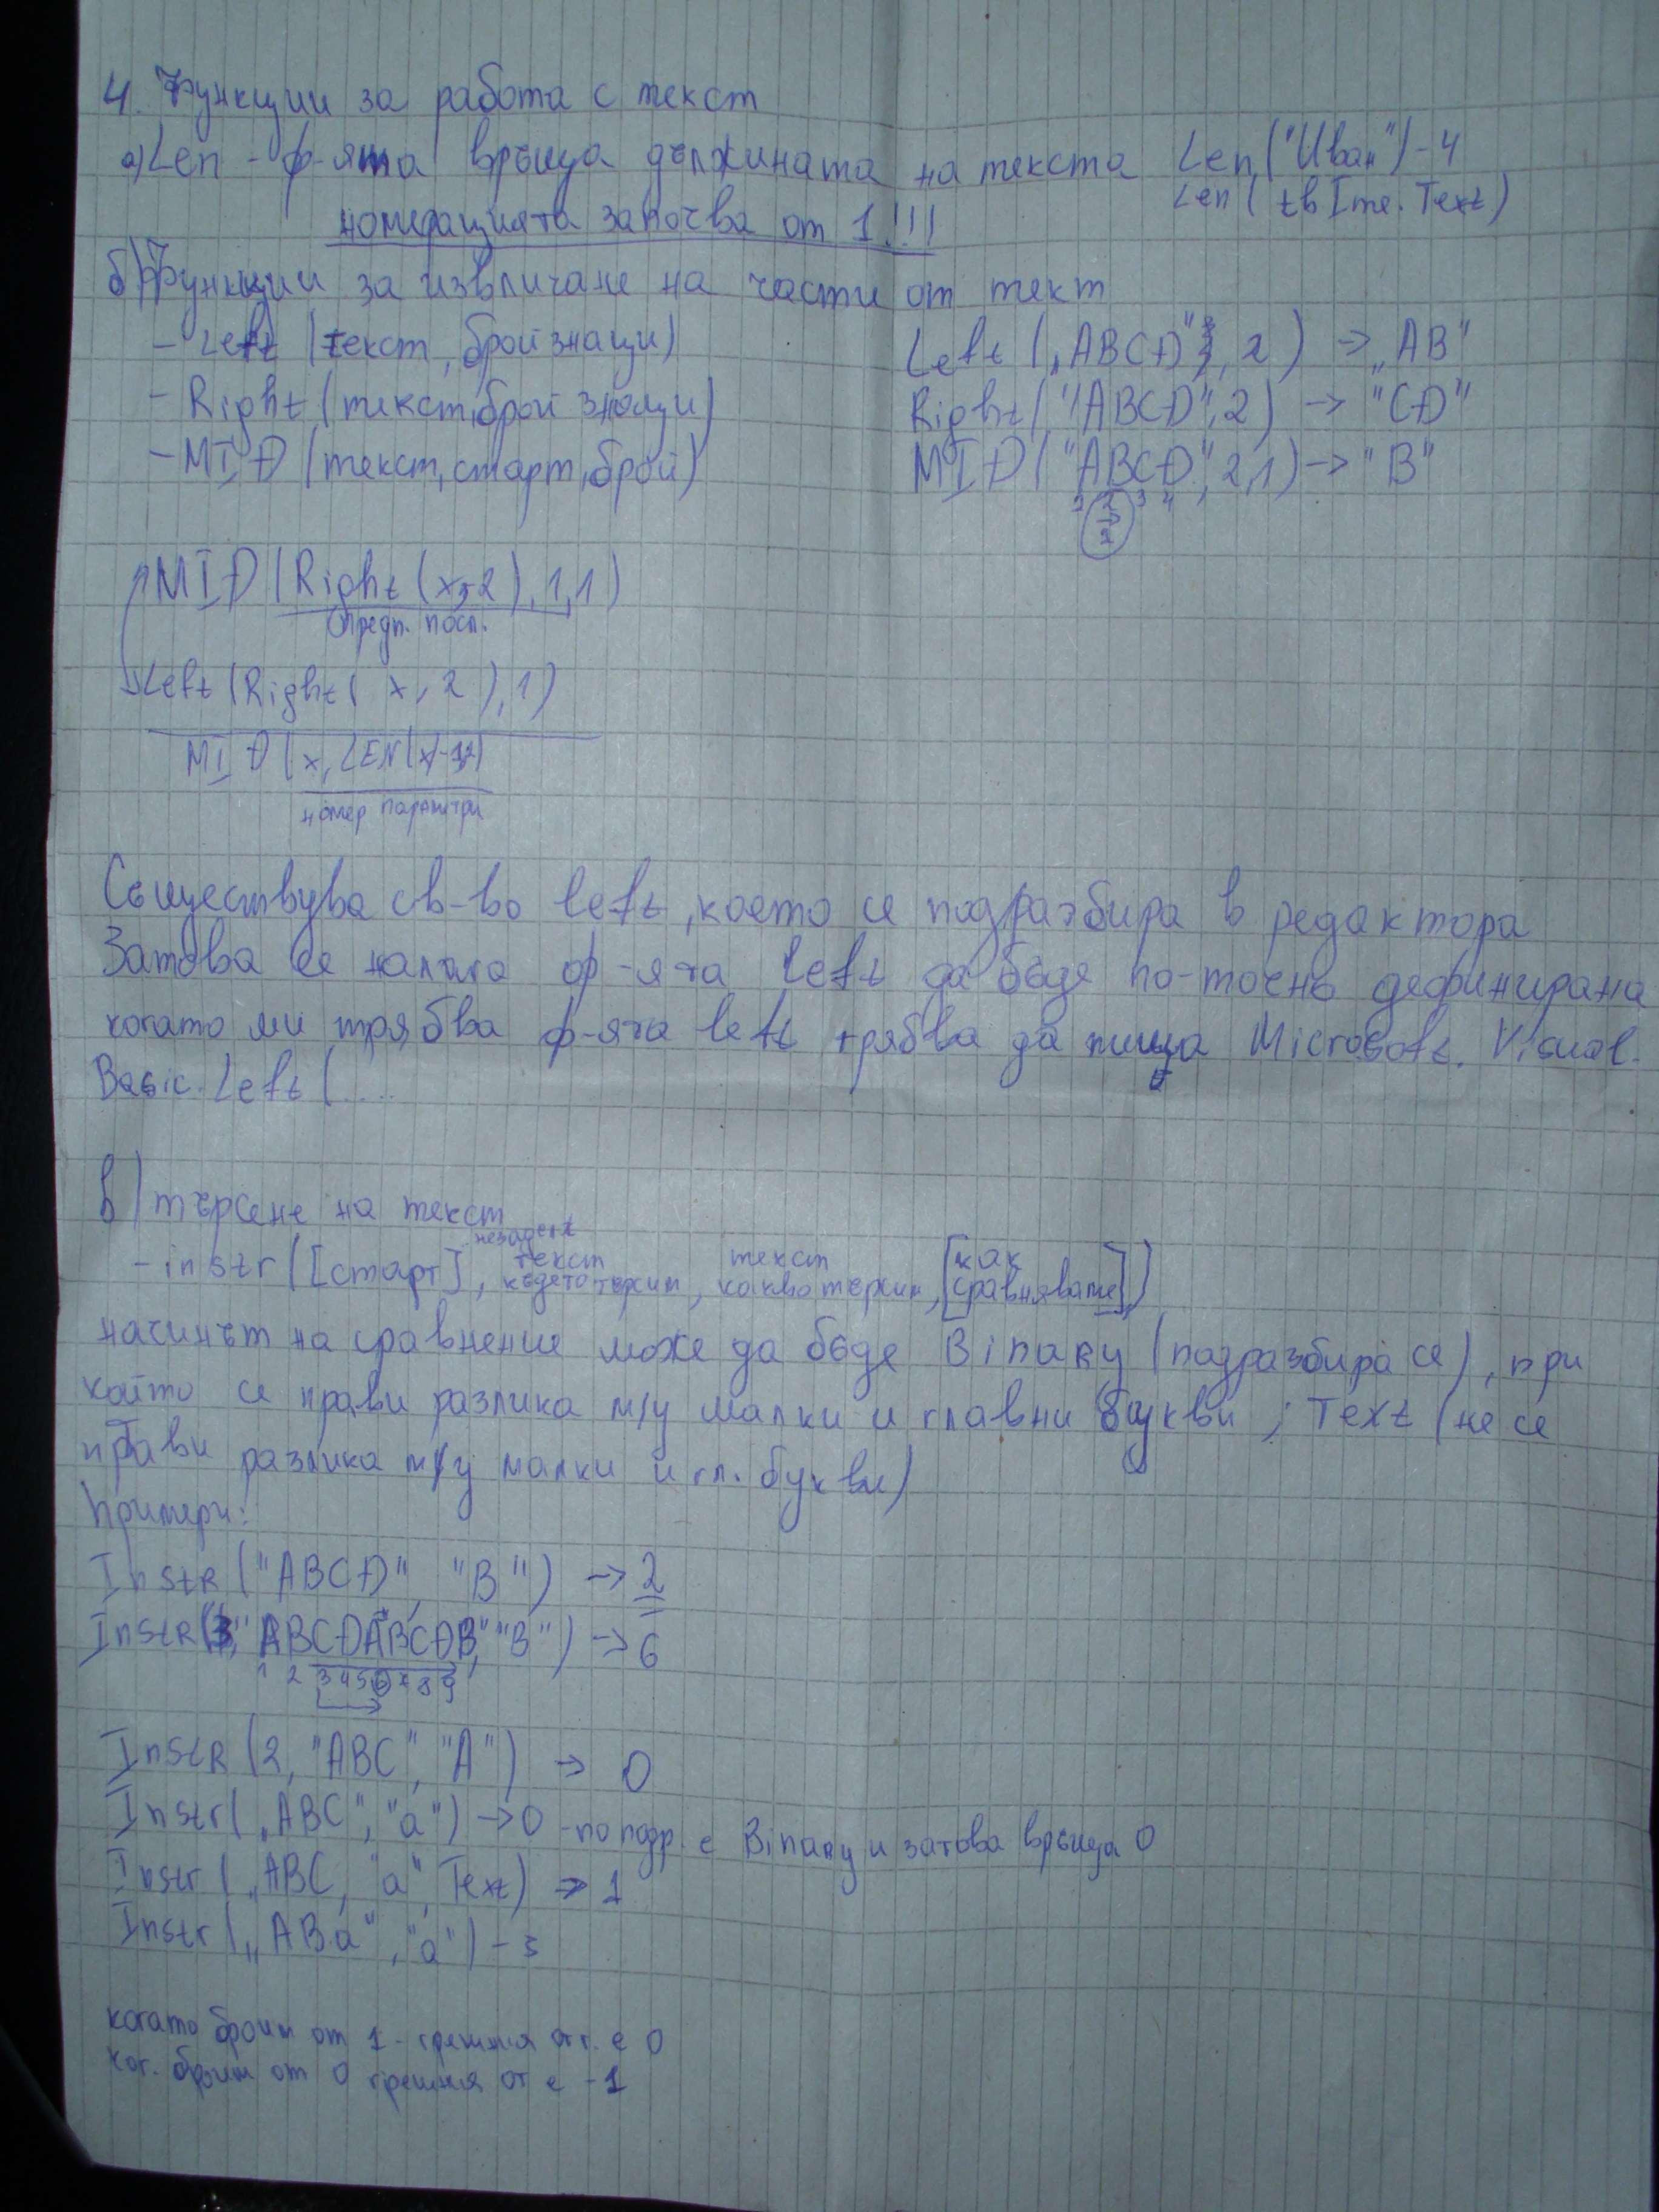 4. Функции за работа с текст
а) Len - ф-ята връща дължината на текста Len("Иван") - 4
Len(tbIme.Text)
номерацията започва от 1!!!
б) Функции за извличане на части от тект
- Left (текст, брой знаци) Left („ABCD", 2) → „AB"
- Right (текст, брой знаци) Right("ABCD", 2) → "CD"
- MID (текст, старт, брой) MID("ABCD", 2,1) → "B"
1 2 3 4
2
MID (Right (x,2),1,1)
предп. посл.
Left (Right( x, 2 ), 1)
MID (x, LEN(x)-1,1)
номер параметри
Съществува св-во left, което се подразбира в редактора
Затова се налага ф-ята left да бъде по-точно дефинирана
когато ми трябва ф-ята left трябва да пиша Microsoft. Visual.
Basic. Left (....
в) търсене на текст
незадълж
- instr ([старт], текст където търсим, текст какво търсим, [как сравняваме])
начинът на сравнение може да бъде Binary (подразбира се), при
който се прави разлика м/у малки и главни букви ; Text (не се
прави разлика м/у малки и гл. букви)
Примери:
InstR ("ABCD", "B") → 2
InstR(3, "ABCDABCDB", "B") → 6
1 2 3 4 5 6 7 8 9
InstR (2, "ABC", "A") → 0
Instr(„ABC", "a") → 0 - по подр. е Binary и затова връща 0
Instr („ABC, "a", Text) → 1
Instr („ABa", "a") - 3
когато броим от 1 - грешния отг. е 0
ког. броим от 0 грешния от е -1